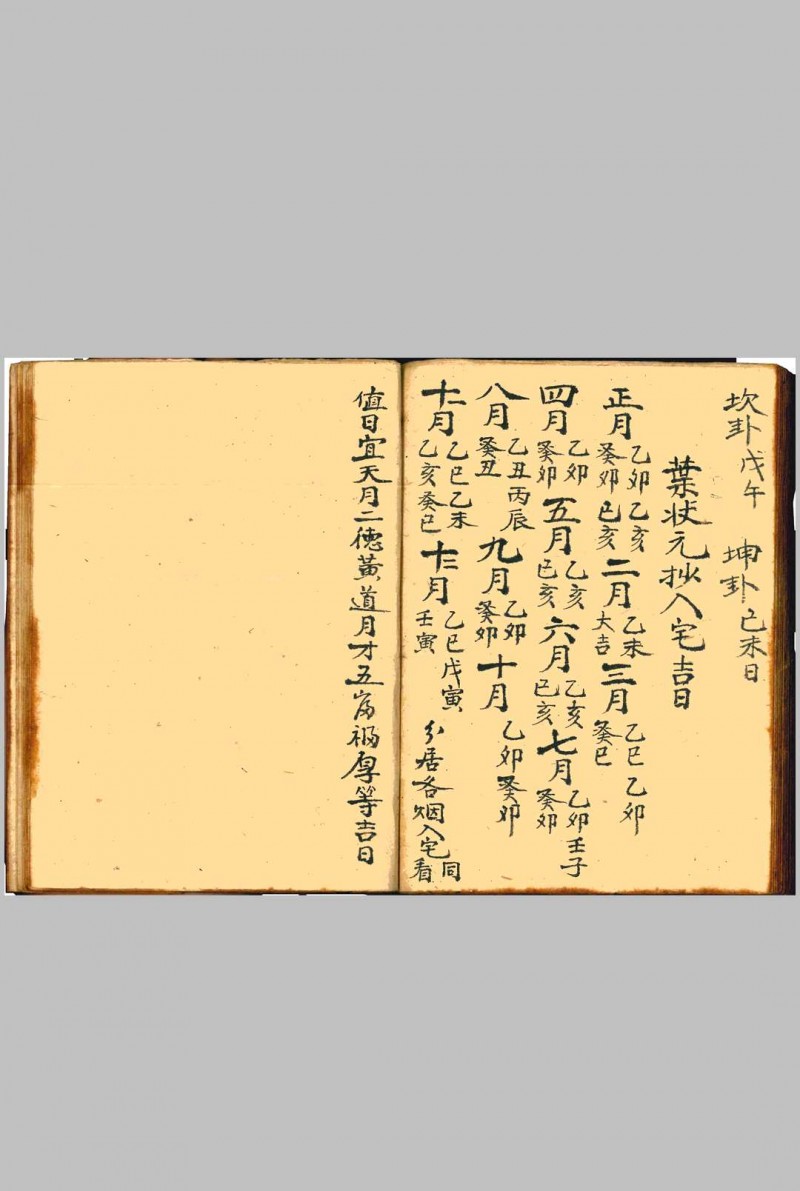 坎卦戊午　坤卦己未日
葉状元抄入宅吉日
正月乙卯乙亥癸卯己亥二月乙未大吉三月乙巳乙卯癸巳
四月乙卯癸卯五月乙亥己亥六月乙亥己亥七月乙卯壬子癸卯
八月乙丑丙辰癸丑九月乙卯癸卯十月乙卯癸卯
十一月乙巳乙未乙亥癸巳十二月乙巳戊寅壬寅　分居各烟入宅同看
值日宜天月二德黃道月才五富福厚等吉日